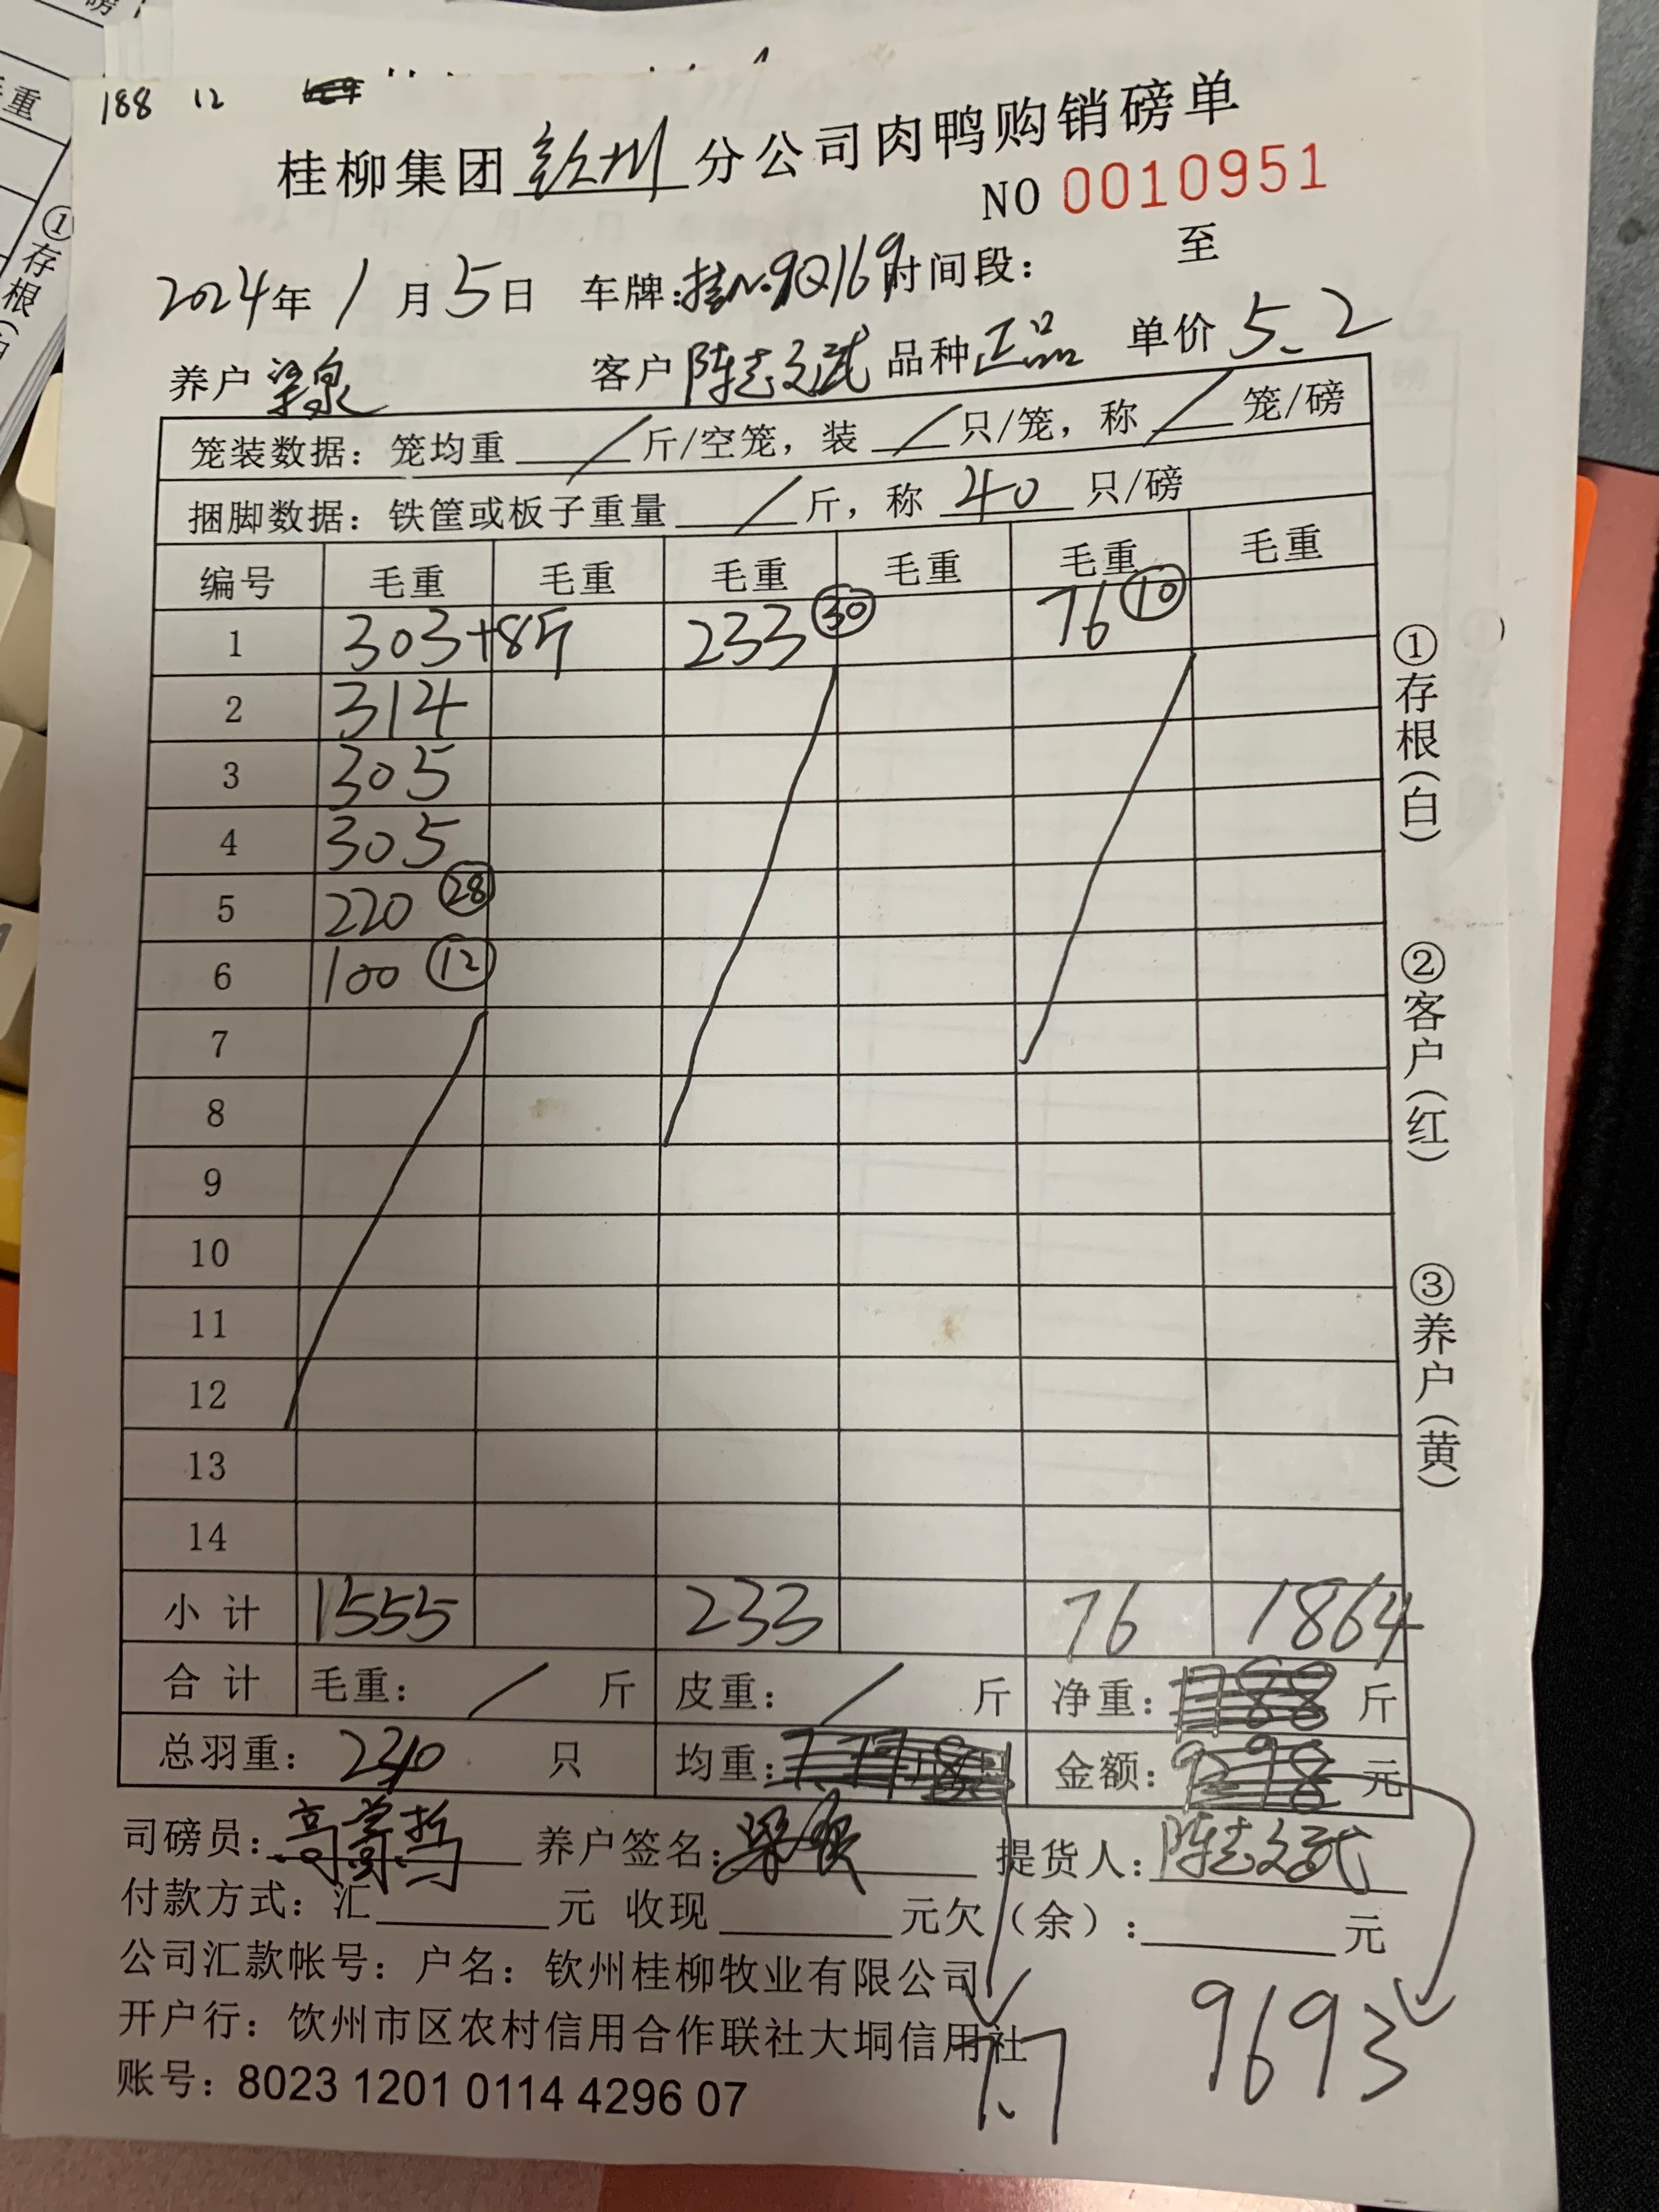 188 12
桂柳集团钦州分公司肉鸭购销磅单
NO 0010951
2024年 1 月 5 日 车牌:桂N·9Q169 时间段: 至
养户 梁泉 客户 陈志文武 品种 正品 单价 5.2
笼装数据: 笼均重 / 斤/空笼, 装 / 只/笼, 称 / 笼/磅
捆脚数据: 铁筐或板子重量 / 斤, 称 40 只/磅
编号 毛重 毛重 毛重 毛重 毛重 毛重
1 303+8斤 233 ㉚ 76 ⑩
2 314
3 305
4 305
5 220 ㉘
6 100 ⑫
7
8
9
10
11
12
13
14
小计 1555 233 76 1864
合计 毛重: / 斤 皮重: / 斤 净重: 斤
总羽重: 240 只 均重: 金额: 元
司磅员: 养户签名: 提货人: 陈志文武
付款方式: 汇 元 收现 元欠(余): 元
公司汇款帐号: 户名: 钦州桂柳牧业有限公司
开户行: 饮州市区农村信用合作联社大垌信用社
账号: 8023 1201 0114 4296 07
7.7 9693
①存根(白)
②客户(红)
③养户(黄)
重
①存根(白